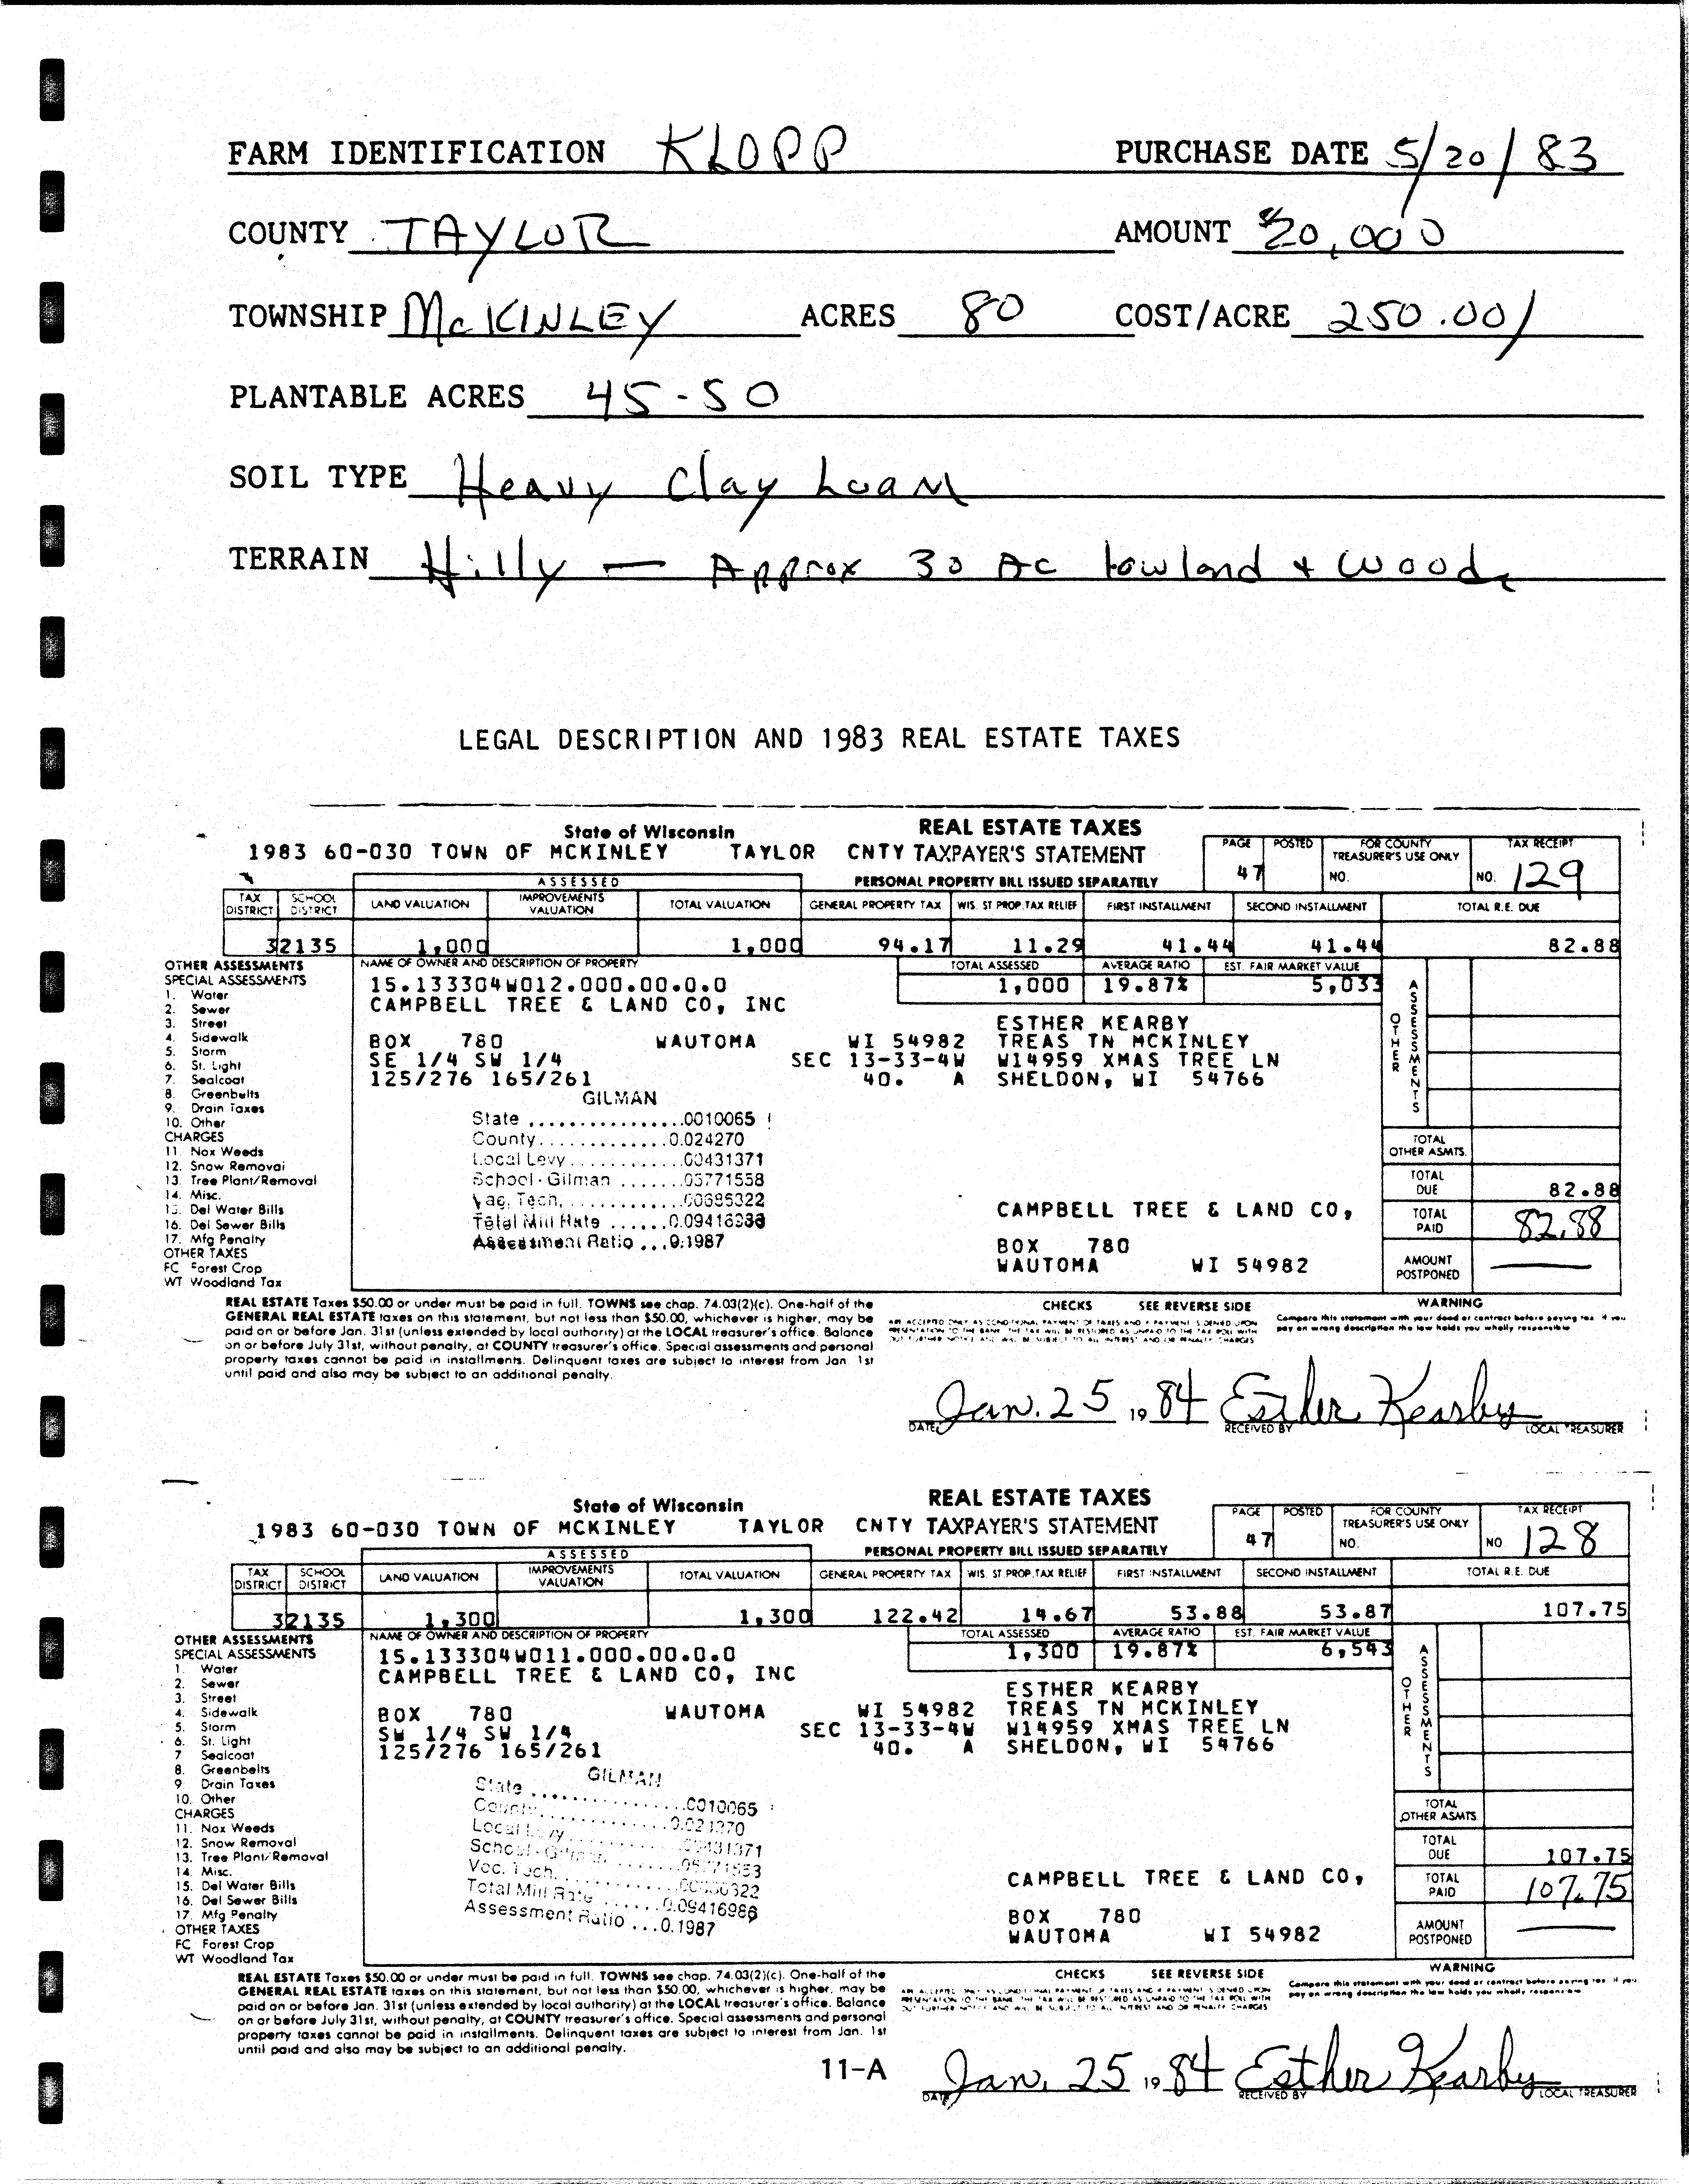 FARM IDENTIFICATION KLOPP PURCHASE DATE 5/20/83
COUNTY TAYLOR AMOUNT $20,000
TOWNSHIP McKINLEY ACRES 80 COST/ACRE 250.00/
PLANTABLE ACRES 45-50
SOIL TYPE Heavy Clay Loam
TERRAIN Hilly — Approx 30 Ac lowland + woods
LEGAL DESCRIPTION AND 1983 REAL ESTATE TAXES
State of Wisconsin REAL ESTATE TAXES
1983 60-030 TOWN OF MCKINLEY TAYLOR CNTY TAXPAYER'S STATEMENT
PERSONAL PROPERTY BILL ISSUED SEPARATELY
PAGE 47 POSTED FOR COUNTY TREASURER'S USE ONLY NO. TAX RECEIPT NO. 129
ASSESSED
TAX DISTRICT SCHOOL DISTRICT LAND VALUATION IMPROVEMENTS VALUATION TOTAL VALUATION GENERAL PROPERTY TAX WIS. ST PROP. TAX RELIEF FIRST INSTALLMENT SECOND INSTALLMENT TOTAL R.E. DUE
32135 1,000 1,000 94.17 11.29 41.44 41.44 82.88
OTHER ASSESSMENTS
SPECIAL ASSESSMENTS
1. Water
2. Sewer
3. Street
4. Sidewalk
5. Storm
6. St. Light
7. Sealcoat
8. Greenbelts
9. Drain Taxes
10. Other
CHARGES
11. Nox Weeds
12. Snow Removal
13. Tree Plant/Removal
14. Misc.
15. Del Water Bills
16. Del Sewer Bills
17. Mfg Penalty
OTHER TAXES
FC Forest Crop
WT Woodland Tax
NAME OF OWNER AND DESCRIPTION OF PROPERTY
TOTAL ASSESSED AVERAGE RATIO EST. FAIR MARKET VALUE
1,000 19.87% 5,033
15.133304W012.000.00.0.0
CAMPBELL TREE & LAND CO, INC
BOX 780 WAUTOMA WI 54982
SE 1/4 SW 1/4 SEC 13-33-4W
125/276 165/261 40. A
ESTHER KEARBY
TREAS TN MCKINLEY
W14959 XMAS TREE LN
SHELDON, WI 54766
GILMAN
State .................0010065
County..............0.024270
Local Levy............00431371
School - Gilman .......05771558
Vac. Tech. ............00685322
Total Mill Rate ......0.09416986
Assessment Ratio ...0.1987
CAMPBELL TREE & LAND CO,
BOX 780
WAUTOMA WI 54982
OTHER ASSESSMENTS
TOTAL OTHER ASMTS.
TOTAL DUE 82.88
TOTAL PAID 82.88
AMOUNT POSTPONED —
REAL ESTATE Taxes $50.00 or under must be paid in full. TOWNS see chap. 74.03(2)(c). One-half of the
GENERAL REAL ESTATE taxes on this statement, but not less than $50.00, whichever is higher, may be
paid on or before Jan. 31st (unless extended by local authority) at the LOCAL treasurer's office. Balance
on or before July 31st, without penalty, at COUNTY treasurer's office. Special assessments and personal
property taxes cannot be paid in installments. Delinquent taxes are subject to interest from Jan. 1st
until paid and also may be subject to an additional penalty.
CHECKS SEE REVERSE SIDE
WARNING
Compare this statement with your deed or contract before paying tax. If you
pay on wrong description the law holds you wholly responsible
DATE Jan. 25, 1984 Esther Kearby
RECEIVED BY LOCAL TREASURER
State of Wisconsin REAL ESTATE TAXES
1983 60-030 TOWN OF MCKINLEY TAYLOR CNTY TAXPAYER'S STATEMENT
PERSONAL PROPERTY BILL ISSUED SEPARATELY
PAGE 47 POSTED FOR COUNTY TREASURER'S USE ONLY NO. TAX RECEIPT NO 128
ASSESSED
TAX DISTRICT SCHOOL DISTRICT LAND VALUATION IMPROVEMENTS VALUATION TOTAL VALUATION GENERAL PROPERTY TAX WIS. ST PROP. TAX RELIEF FIRST INSTALLMENT SECOND INSTALLMENT TOTAL R.E. DUE
32135 1,300 1,300 122.42 14.67 53.88 53.87 107.75
OTHER ASSESSMENTS
SPECIAL ASSESSMENTS
1. Water
2. Sewer
3. Street
4. Sidewalk
5. Storm
6. St. Light
7 Sealcoat
8. Greenbelts
9. Drain Taxes
10. Other
CHARGES
11. Nox Weeds
12. Snow Removal
13. Tree Plant/Removal
14. Misc.
15. Del Water Bills
16. Del Sewer Bills
17. Mfg Penalty
OTHER TAXES
FC Forest Crop
WT Woodland Tax
NAME OF OWNER AND DESCRIPTION OF PROPERTY
TOTAL ASSESSED AVERAGE RATIO EST. FAIR MARKET VALUE
1,300 19.87% 6,543
15.133304W011.000.00.0.0
CAMPBELL TREE & LAND CO, INC
BOX 780 WAUTOMA WI 54982
SW 1/4 SW 1/4 SEC 13-33-4W
125/276 165/261 40. A
ESTHER KEARBY
TREAS TN MCKINLEY
W14959 XMAS TREE LN
SHELDON, WI 54766
GILMAN
State .................0010065
County
Local Levy
School - Gilman
Voc. Tech.
Total Mill Rate ......0.09416986
Assessment Ratio ...0.1987
CAMPBELL TREE & LAND CO,
BOX 780
WAUTOMA WI 54982
OTHER ASSESSMENTS
TOTAL OTHER ASMTS
TOTAL DUE 107.75
TOTAL PAID 107.75
AMOUNT POSTPONED —
REAL ESTATE Taxes $50.00 or under must be paid in full. TOWNS see chap. 74.03(2)(c). One-half of the
GENERAL REAL ESTATE taxes on this statement, but not less than $50.00, whichever is higher, may be
paid on or before Jan. 31st (unless extended by local authority) at the LOCAL treasurer's office. Balance
on or before July 31st, without penalty, at COUNTY treasurer's office. Special assessments and personal
property taxes cannot be paid in installments. Delinquent taxes are subject to interest from Jan. 1st
until paid and also may be subject to an additional penalty.
CHECKS SEE REVERSE SIDE
WARNING
Compare this statement with your deed or contract before paying tax. If you
pay on wrong description the law holds you wholly responsible
11-A
DATE Jan. 25, 1984 Esther Kearby
RECEIVED BY LOCAL TREASURER